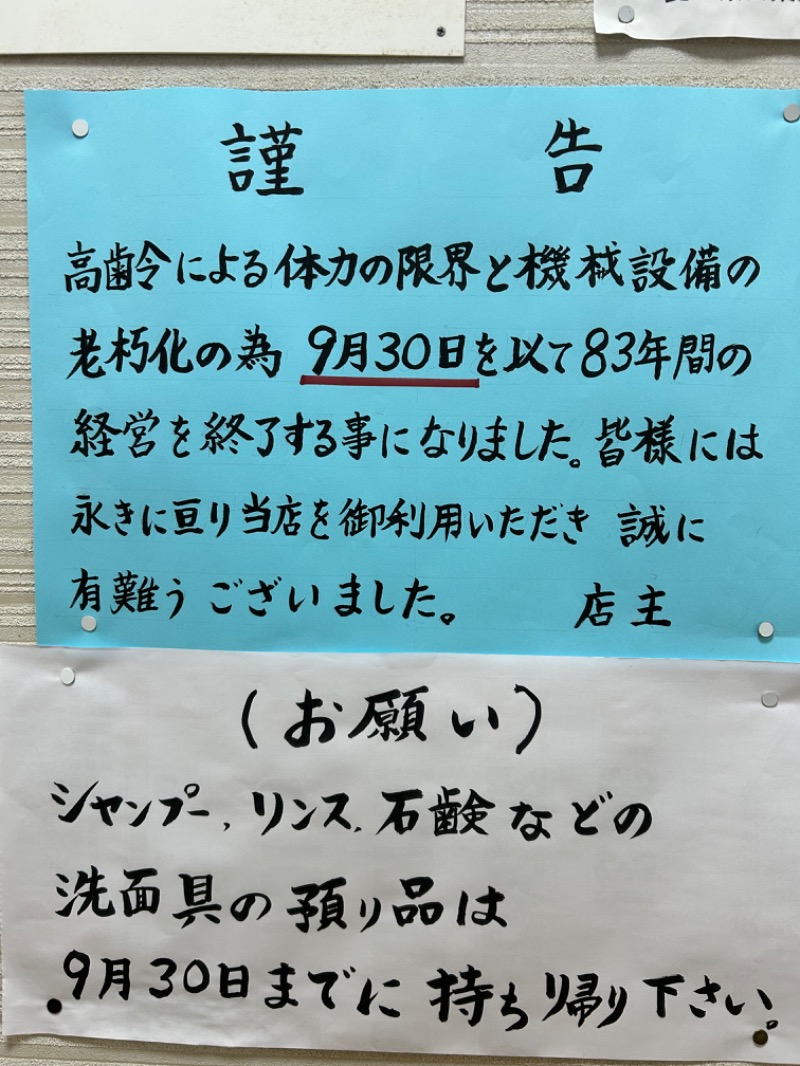 謹告
高歯令による体力の限界と機械設備の
老朽化の為 9月30日を以て83年間の
経営を終了する事になりました。皆様には
永きに亘り当店を御利用いただき 誠に
有難うございました。 店主
(お願い)
シャンプー、リンス、石鹸などの
洗面具の預り品は
9月30日までに持ち帰り下さい。